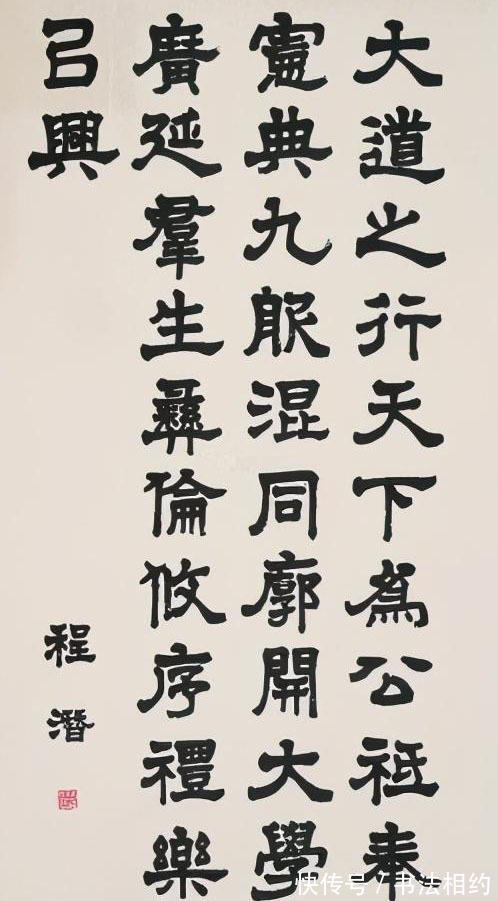 大道之行天下為公祗奉
憲典九服混同廓開大學
廣延羣生彝倫攸序禮樂
㠯興
程潛
快传号/书法相约